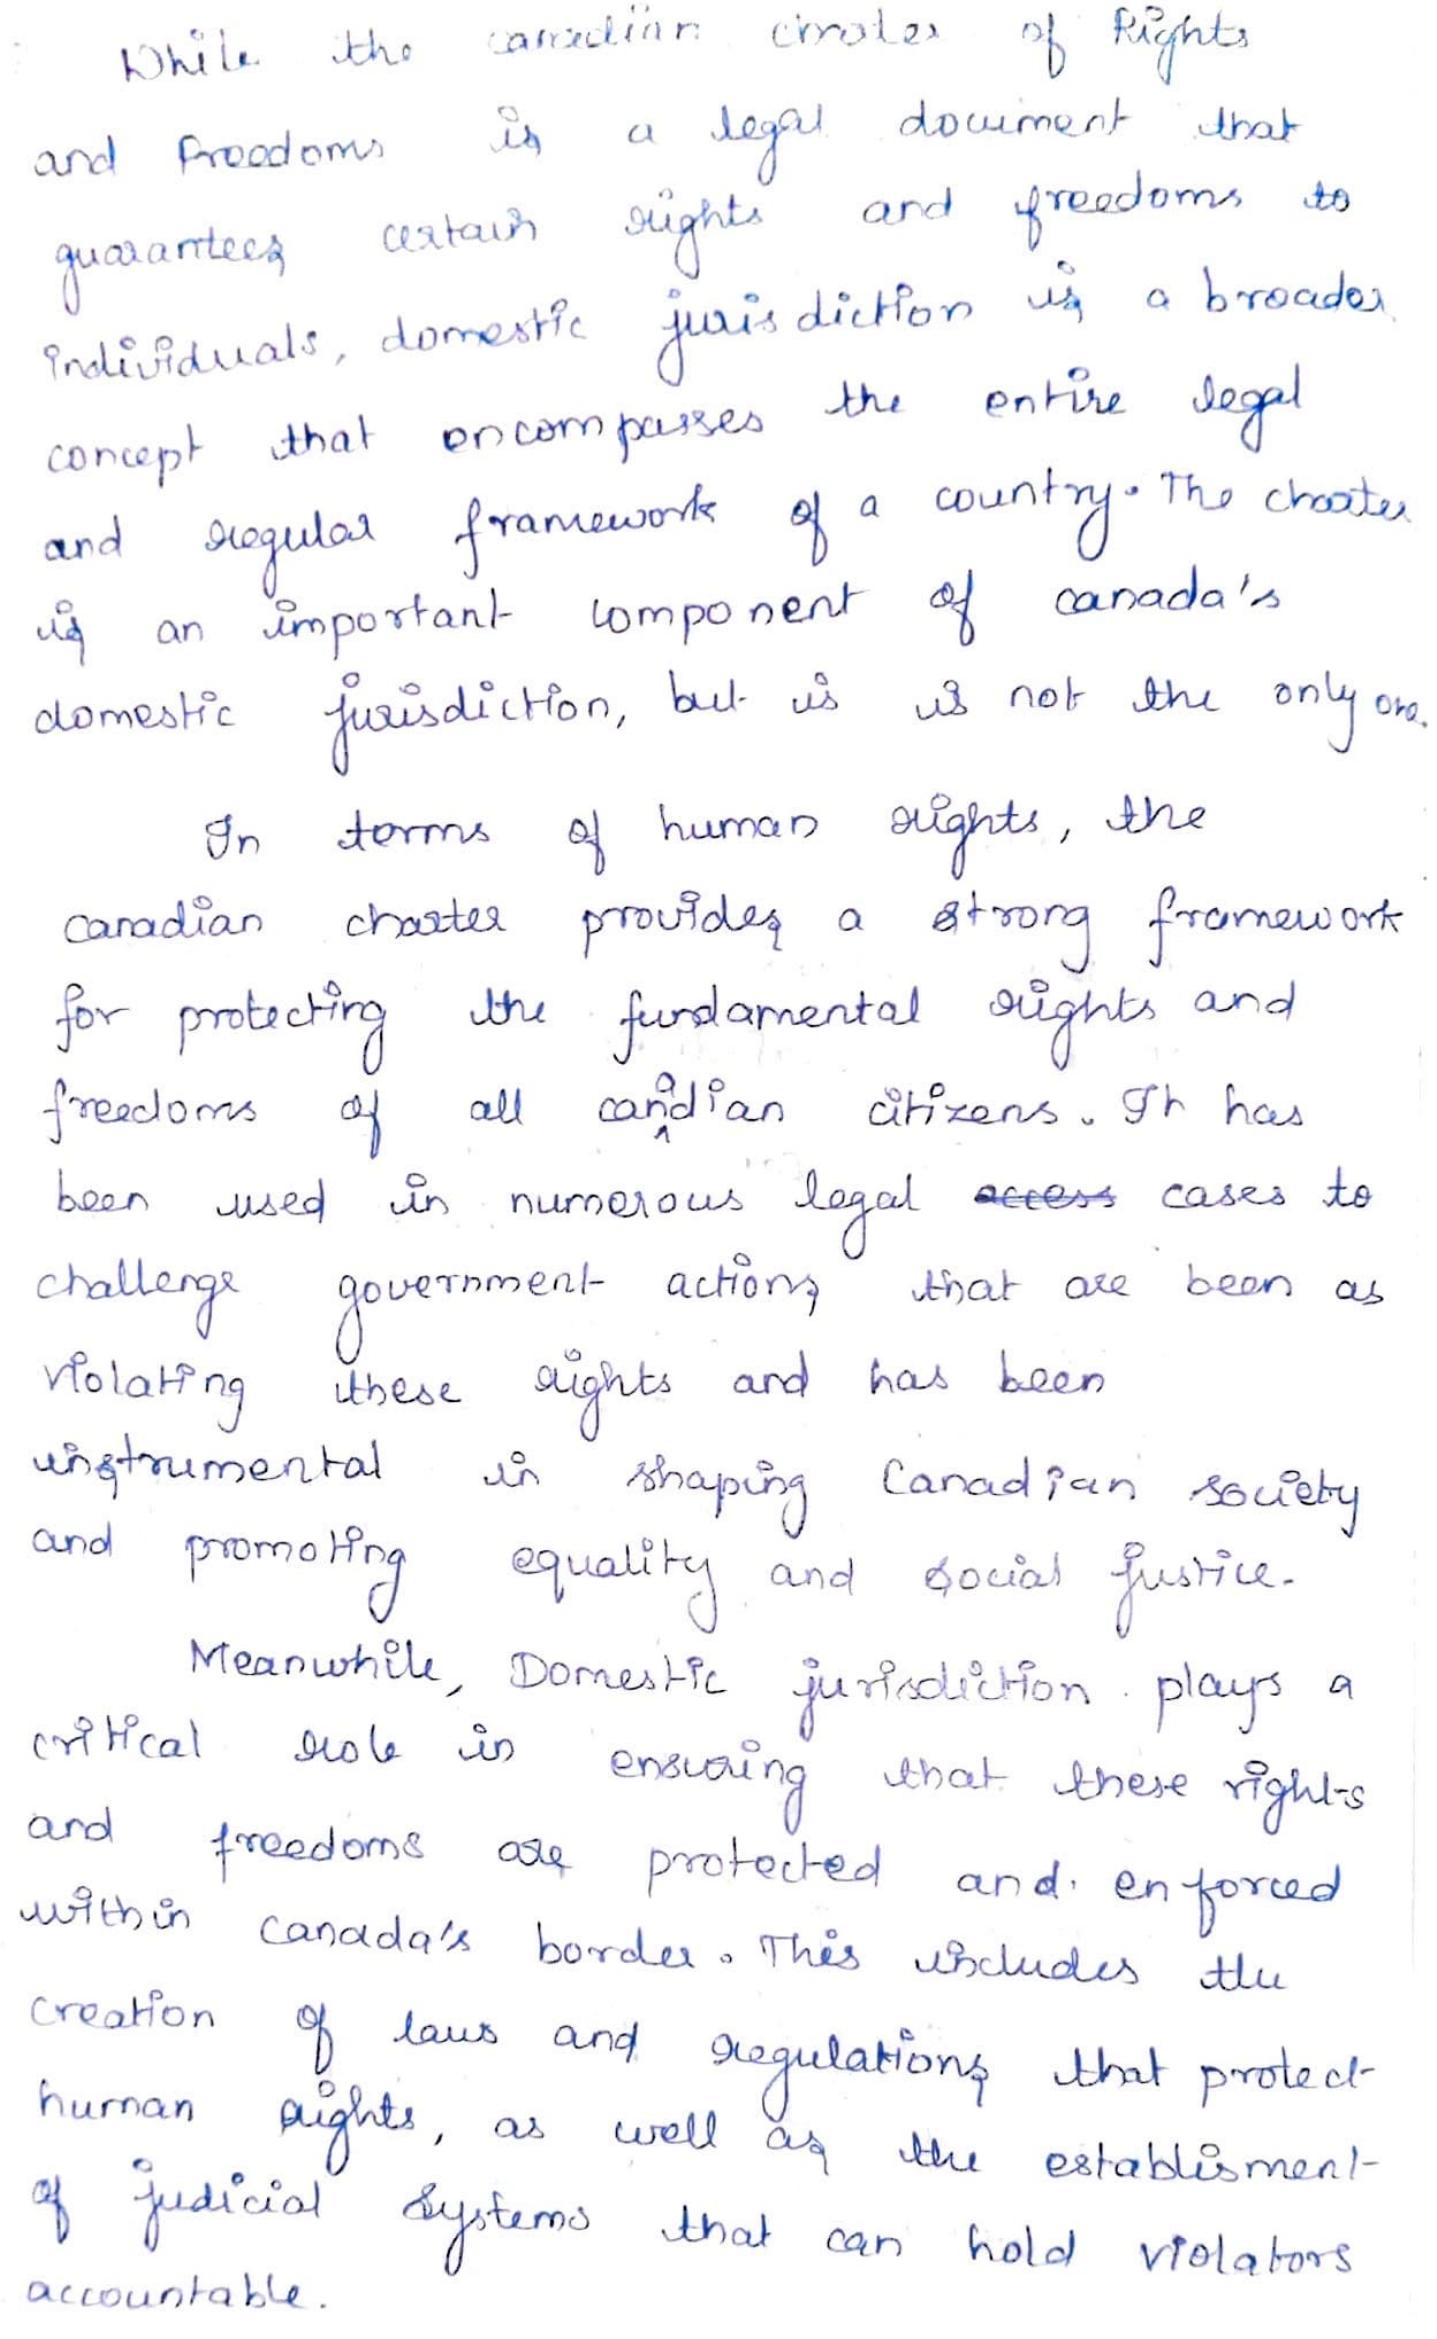 While the canadian chroter of Rights
and Freedoms is a legal document that
guarantees certain rights and freedoms to
individuals, domestic jurisdiction is a broader
concept that encompasses the entire legal
and regular framework of a country. The charter
is an important component of canada's
domestic jurisdiction, but is is not the only one.
In terms of human rights, the
canadian charter provides a strong framework
for protecting the fundamental rights and
freedoms of all canadian citizens. It has
been used in numerous legal access cases to
challenge government actions that are been as
violating these rights and has been
instrumental in shaping Canadian society
and promoting equality and social justice.
Meanwhile, Domestic jurisdiction plays a
critical role in ensuring that these rights
and freedoms are protected and enforced
within Canada's border. This includes the
creation of laws and regulations that protect
human rights, as well as the establisment
of judicial systems that can hold violators
accountable.